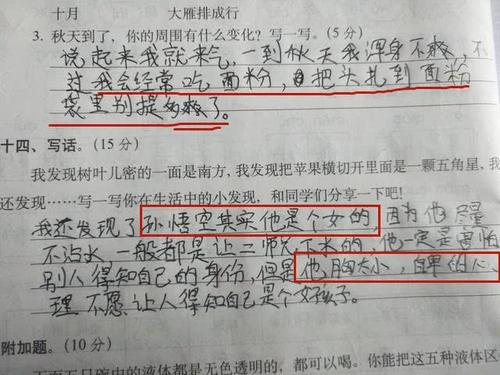 十月 大雁排成行
3. 秋天到了，你的周围有什么变化？写一写。(5分)
说起来我就来气，一到秋天我浑身不爽，不
过我会经常吃面粉，把头扎到面粉
袋里别提多爽了。
十四、写话。(15分)
我发现树叶儿密的一面是南方，我发现把苹果横切开里面是一颗五角星，我
还发现……写一写你在生活中的小发现，和同学们分享一下吧！
我还发现了孙悟空其实他是个女的，因为他尽量
不沾水，一般都是让二师兄下水的，他一定是害怕
别人得知自己的身份，但是他胸太小，自卑的心
理不愿让人得知自己是个女孩子。
附加题。(10分)
下面五只碗中的液体都是无色透明的，都可以喝。你能把这五种液体区